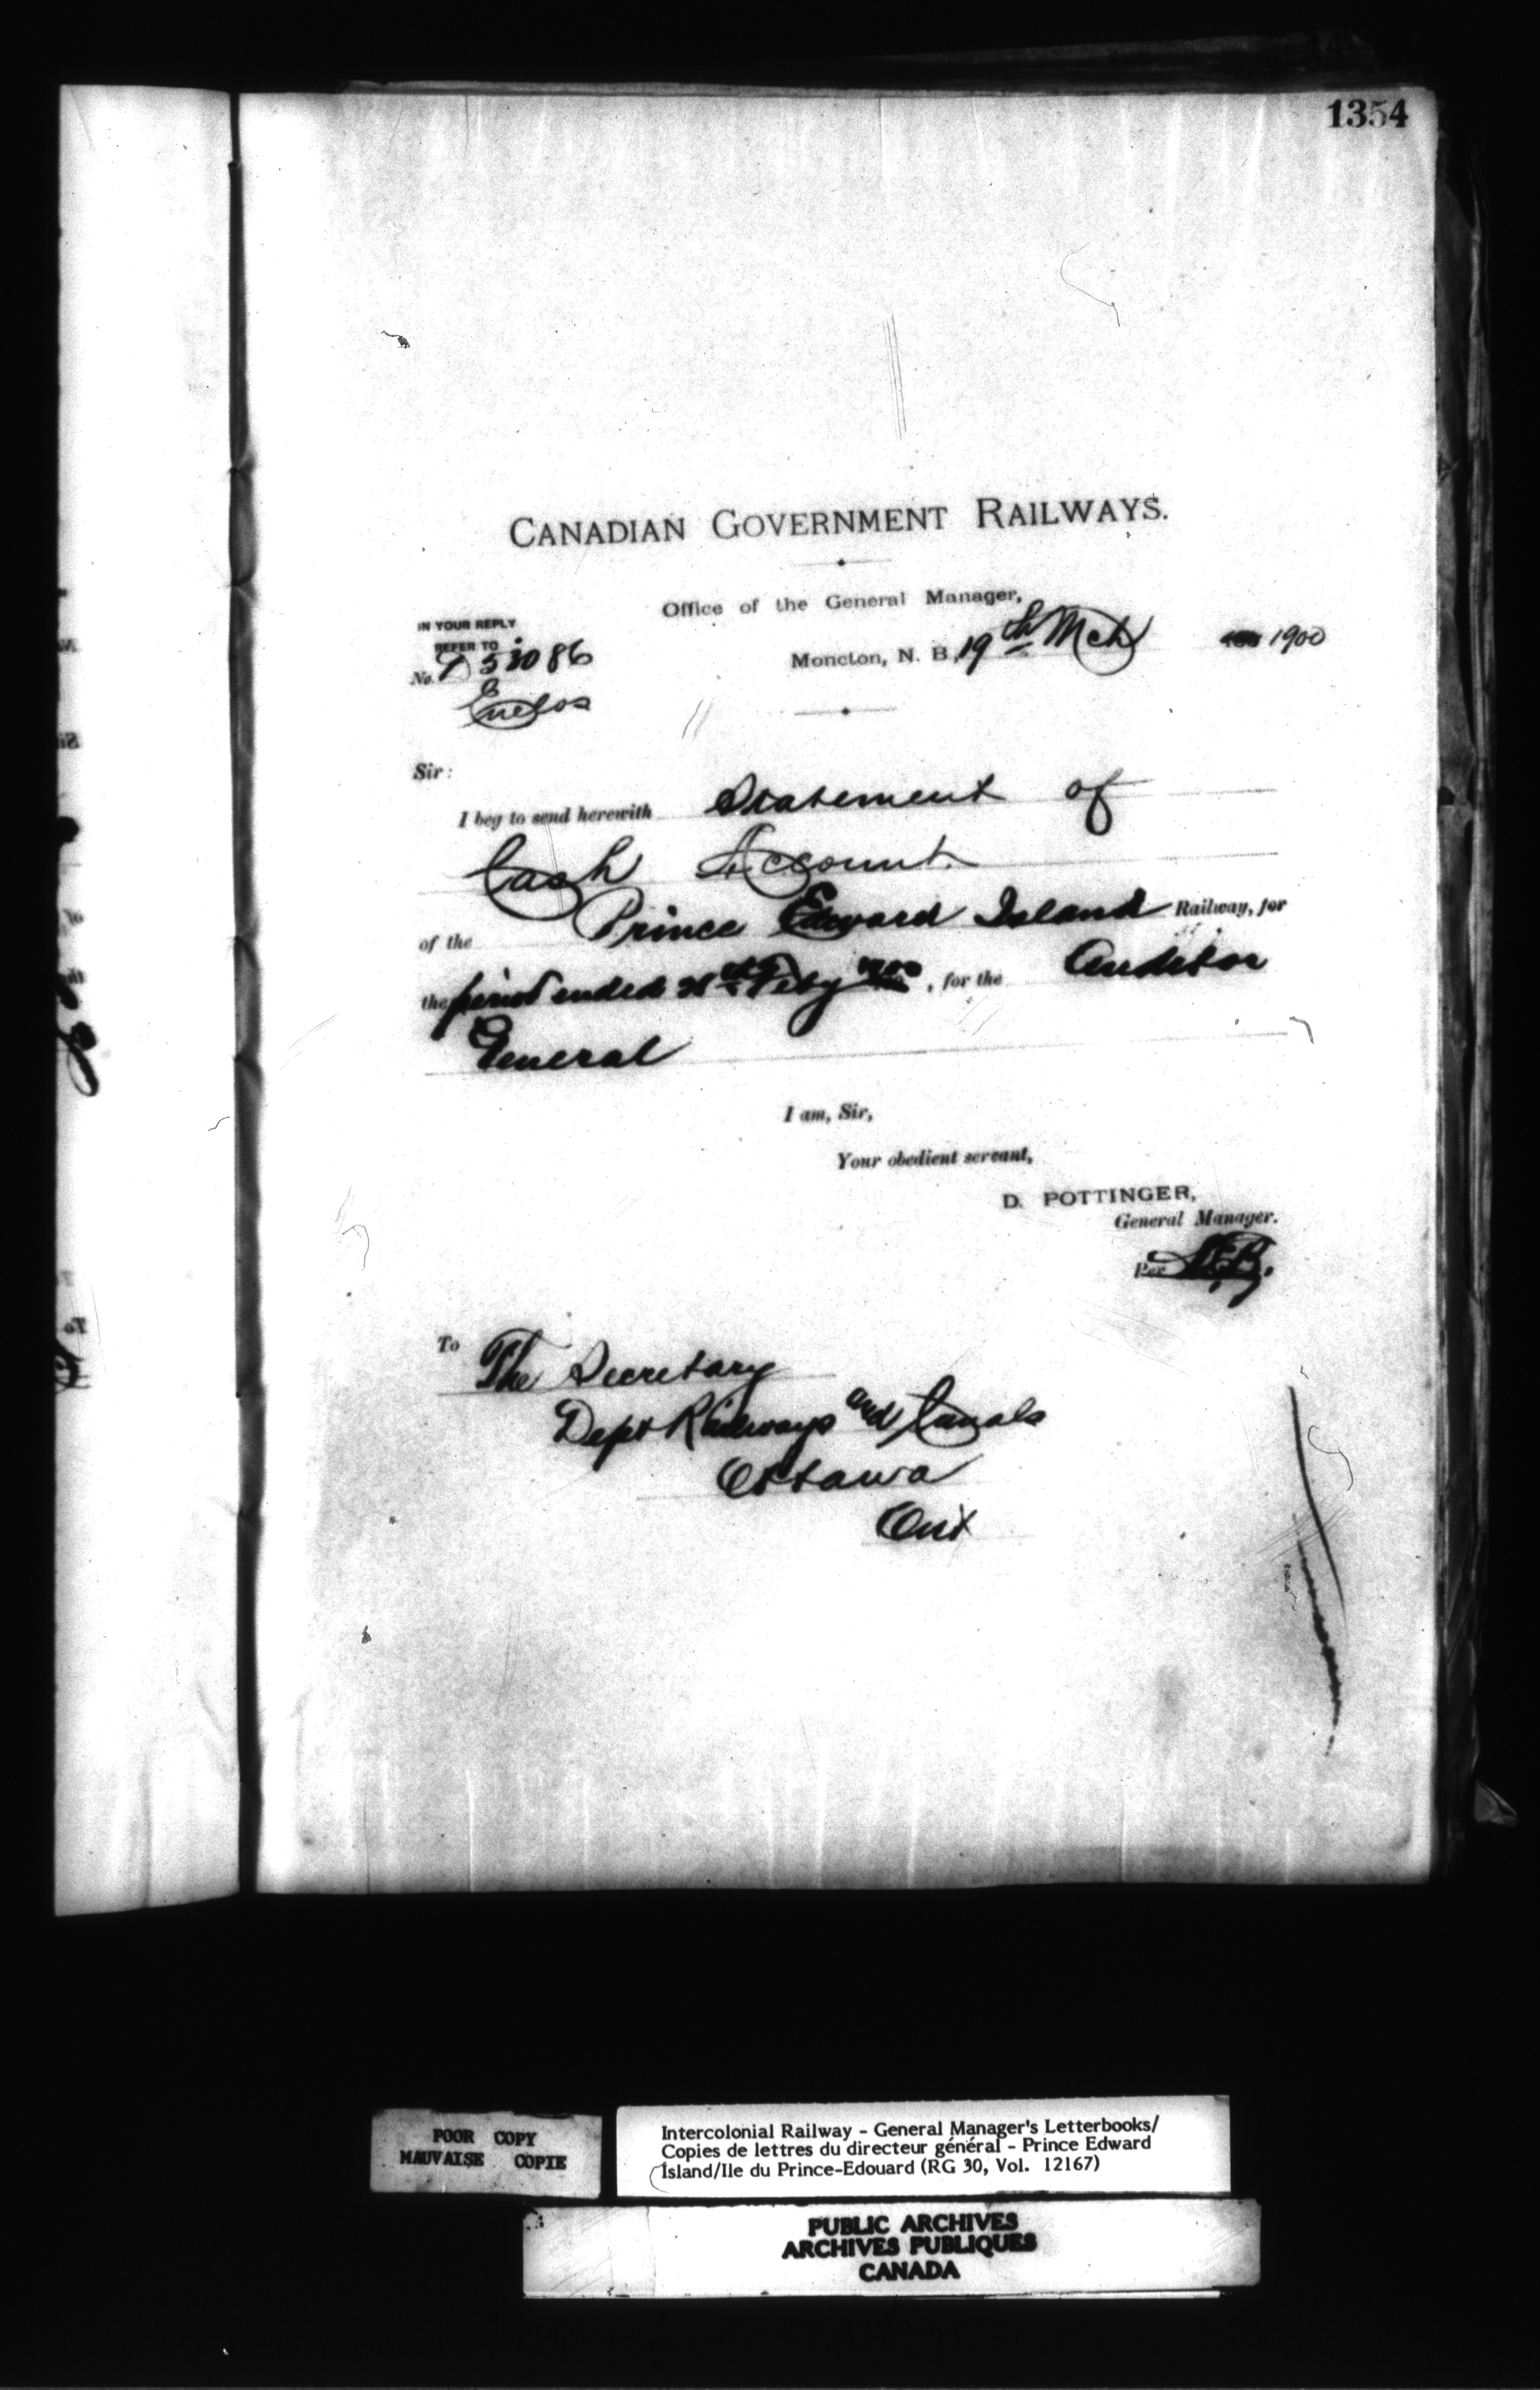 1354
CANADIAN GOVERNMENT RAILWAYS.
Office of the General Manager,
IN YOUR REPLY
REFER TO
No. D 53086
Enclos
Moncton, N. B., 19th Mch 1900
Sir:
I beg to send herewith Statement of
Cash Account
of the Prince Edward Island Railway, for
the period ended 28th Feby 1900, for the Auditor
General
I am, Sir,
Your obedient servant,
D. POTTINGER,
General Manager.
Per
To The Secretary
Dept Railways and Canals
Ottawa
Ont
POOR COPY
MAUVAISE COPIE
Intercolonial Railway - General Manager's Letterbooks/
Copies de lettres du directeur général - Prince Edward
Island/Ile du Prince-Edouard (RG 30, Vol. 12167)
PUBLIC ARCHIVES
ARCHIVES PUBLIQUES
CANADA